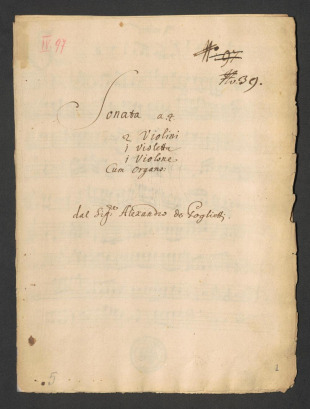 II. 97
No. 97
No. 39.
Sonata a 4
2 Violini
1 Violetta
1 Violone
Cum Organo:
dal Sigre Alexandro de Poglietti.
5
1